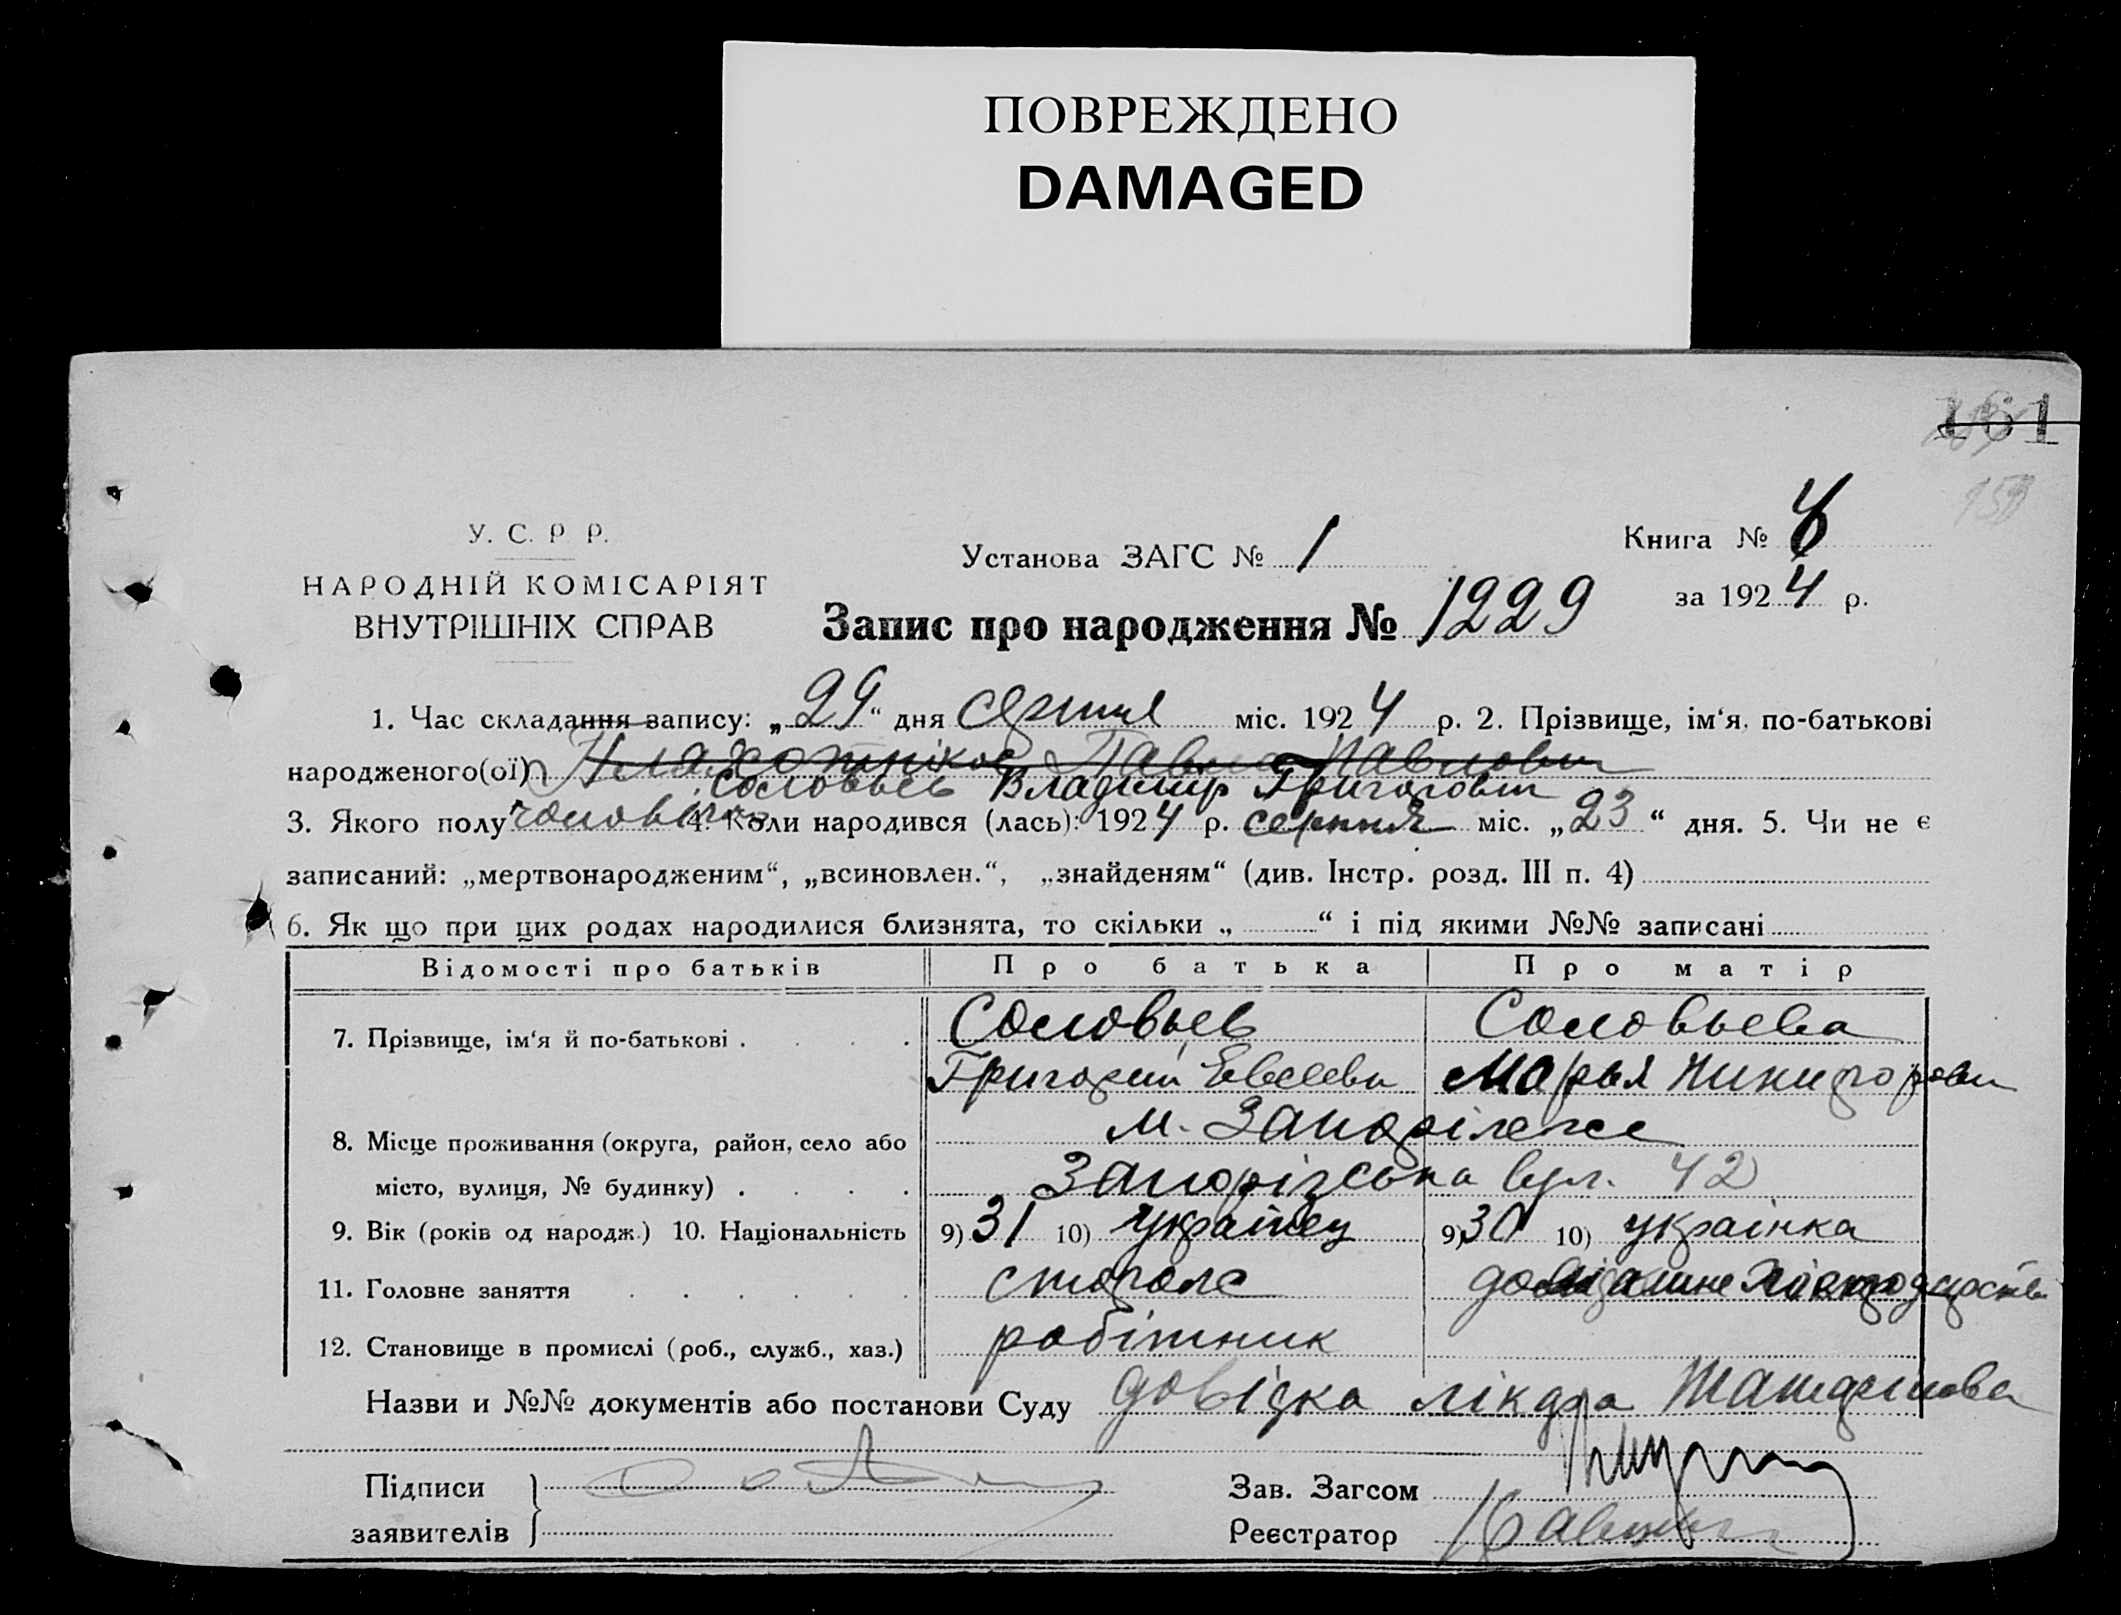 ПОВРЕЖДЕНО
DAMAGED
161
У. С. Р. Р.
НАРОДНІЙ КОМІСАРІЯТ
ВНУТРІШНІХ СПРАВ
Установа ЗАГС № 1
Книга №
за 1924 р.
Запис про народження № 1229
1. Час складання запису: „29“ дня серпня міс. 1924 р. 2. Прізвище, ім‘я, по-батькові
народженого(ої) Павлович
Соловьев Владимир Григорович
3. Якого полу чоловіч 4. Коли народився (лась): 1924 р. серпня міс. „23“ дня. 5. Чи не є
записаний: „мертвонародженим“, „всиновлен.“, „знайденям“ (див. Інстр. розд. III п. 4)
6. Як що при цих родах народилися близнята, то скільки „ “ і під якими №№ записані
Відомості про батьків Про батька Про матір
7. Прізвище, ім‘я й по-батькові . . . . Соловьев Соловьева
Григорий Евсееви Марья Никифорови
8. Місце проживання (округа, район, село або м. Запоріжже
місто, вулиця, № будинку) . . . . Запорізська вул. 42
9. Вік (років од народж.) 10. Національність 9) 31 10) украінец 9) 30 10) украінка
11. Головне заняття . . . . . . столяр
12. Становище в промислі (роб., служб., хаз.) робітник
Назви и №№ документів або постанови Суду довідка лікаря
Підписи
заявителів
Зав. Загсом
Реєстратор